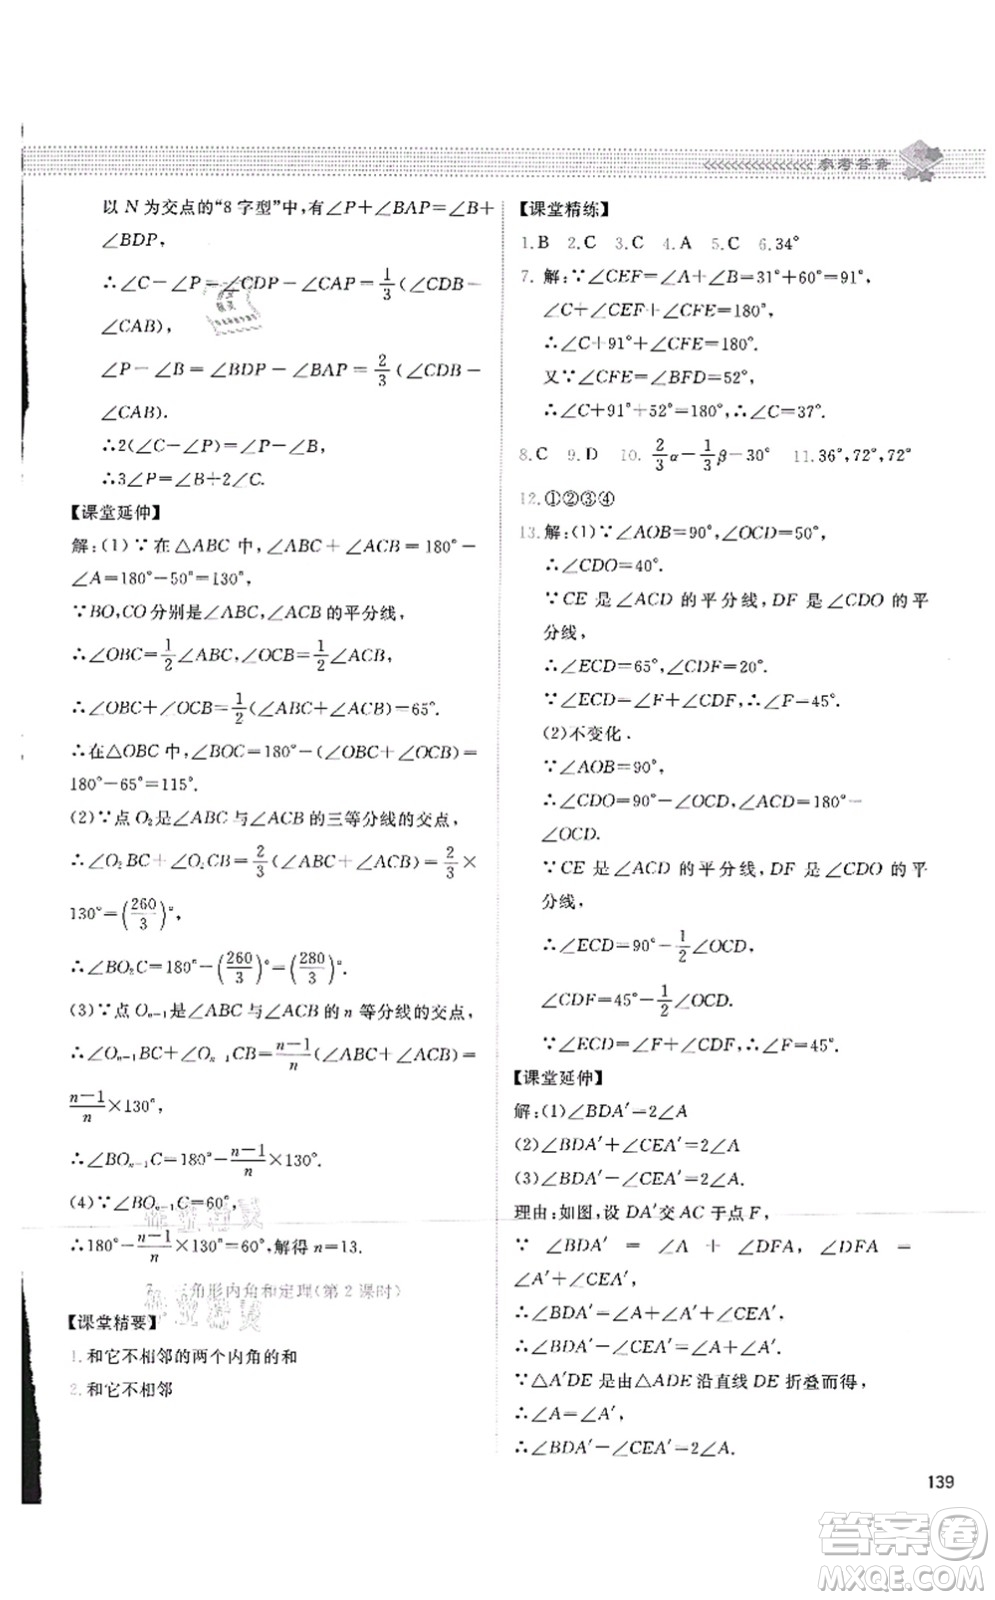 参考答案
以 N 为交点的“8 字型”中,有∠P+∠BAP=∠B+
∠BDP,
∴∠C-∠P=∠CDP-∠CAP=1/3(∠CDB-
∠CAB),
∠P-∠B=∠BDP-∠BAP=2/3(∠CDB-
∠CAB).
∴2(∠C-∠P)=∠P-∠B,
∴3∠P=∠B+2∠C.
【课堂延伸】
解:(1)∵在△ABC 中,∠ABC+∠ACB=180°-
∠A=180°-50°=130°,
∵BO,CO 分别是∠ABC,∠ACB 的平分线,
∴∠OBC=1/2∠ABC,∠OCB=1/2∠ACB,
∴∠OBC+∠OCB=1/2(∠ABC+∠ACB)=65°.
∴在△OBC 中,∠BOC=180°-(∠OBC+∠OCB)=
180°-65°=115°.
(2)∵点 O₂是∠ABC 与∠ACB 的三等分线的交点,
∴∠O₂BC+∠O₂CB=2/3(∠ABC+∠ACB)=2/3×
130°=(260/3)°,
∴∠BO₂C=180°-(260/3)°=(280/3)°.
(3)∵点 Oₙ₋₁是∠ABC 与∠ACB 的 n 等分线的交点,
∴∠Oₙ₋₁BC+∠Oₙ₋₁CB=(n-1)/n(∠ABC+∠ACB)=
(n-1)/n×130°,
∴∠BOₙ₋₁C=180°-(n-1)/n×130°.
(4)∵∠BOₙ₋₁C=60°,
∴180°-(n-1)/n×130°=60°,解得 n=13.
角形内角和定理(第 2 课时)
【课堂精要】
1.和它不相邻的两个内角的和
2.和它不相邻
【课堂精练】
1.B 2.C 3.C 4.A 5.C 6.34°
7.解:∵∠CEF=∠A+∠B=31°+60°=91°,
∠C+∠CEF+∠CFE=180°,
∴∠C+91°+∠CFE=180°.
又∵∠CFE=∠BFD=52°,
∴∠C+91°+52°=180°,∴∠C=37°.
8.C 9.D 10. 2/3α-1/3β-30° 11.36°,72°,72°
12.①②③④
13.解:(1)∵∠AOB=90°,∠OCD=50°,
∴∠CDO=40°.
∵CE 是∠ACD 的平分线,DF 是∠CDO 的平
分线,
∴∠ECD=65°,∠CDF=20°.
∵∠ECD=∠F+∠CDF,∴∠F=45°.
(2)不变化.
∵∠AOB=90°,
∴∠CDO=90°-∠OCD,∠ACD=180°-
∠OCD.
∵CE 是∠ACD 的平分线,DF 是∠CDO 的平
分线,
∴∠ECD=90°-1/2∠OCD,
∠CDF=45°-1/2∠OCD.
∵∠ECD=∠F+∠CDF,∴∠F=45°.
【课堂延伸】
解:(1)∠BDA′=2∠A
(2)∠BDA′+∠CEA′=2∠A
(3)∠BDA′-∠CEA′=2∠A.
理由:如图,设 DA′交 AC 于点 F,
∵∠BDA′=∠A+∠DFA,∠DFA=
∠A′+∠CEA′,
∴∠BDA′=∠A+∠A′+∠CEA′,
∴∠BDA′-∠CEA′=∠A+∠A′.
∵△A′DE 是由△ADE 沿直线 DE 折叠而得,
∴∠A=∠A′,
∴∠BDA′-∠CEA′=2∠A.
139
答案卷
MXQE.COM